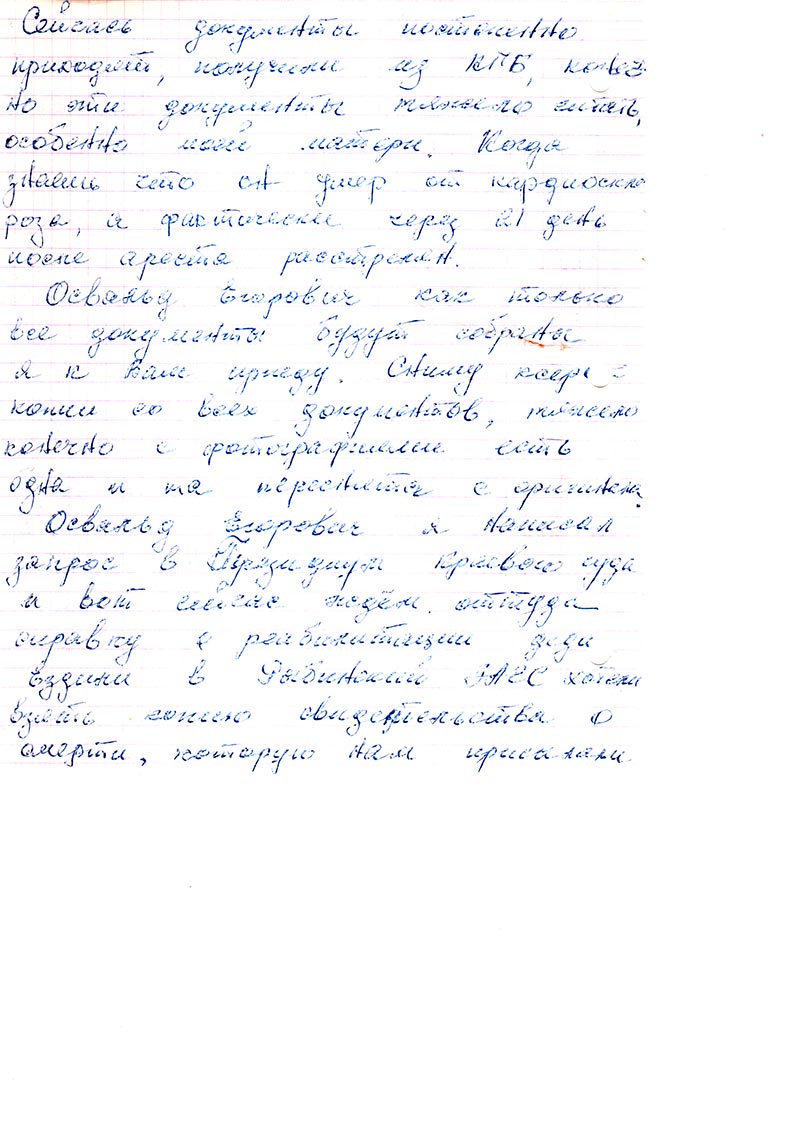 Сейчась документы постепенно
приходят, получили из КГБ, конеч-
но эти документы тяжело читать,
особенно моей матери. Когда
знаешь что он умер от кардиоскле
роза, а фактически через 21 день
после ареста расстрелян.
Освальд Егорович как только
все документы будут собраны
я к Вам приеду. Сниму ксеро-
копии со всех документов, тяжело
конечно с фотографиями есть
одна и та переснята с оригинала.
Освальд Егорович я написал
запрос в Президиум краевого суда
и вот сейчас ждём оттуда
справку о реабилитации деда
Ездили в Рыбинский ЗАГС хотели
взять копию свидетельства о
смерти, которую нам присылали